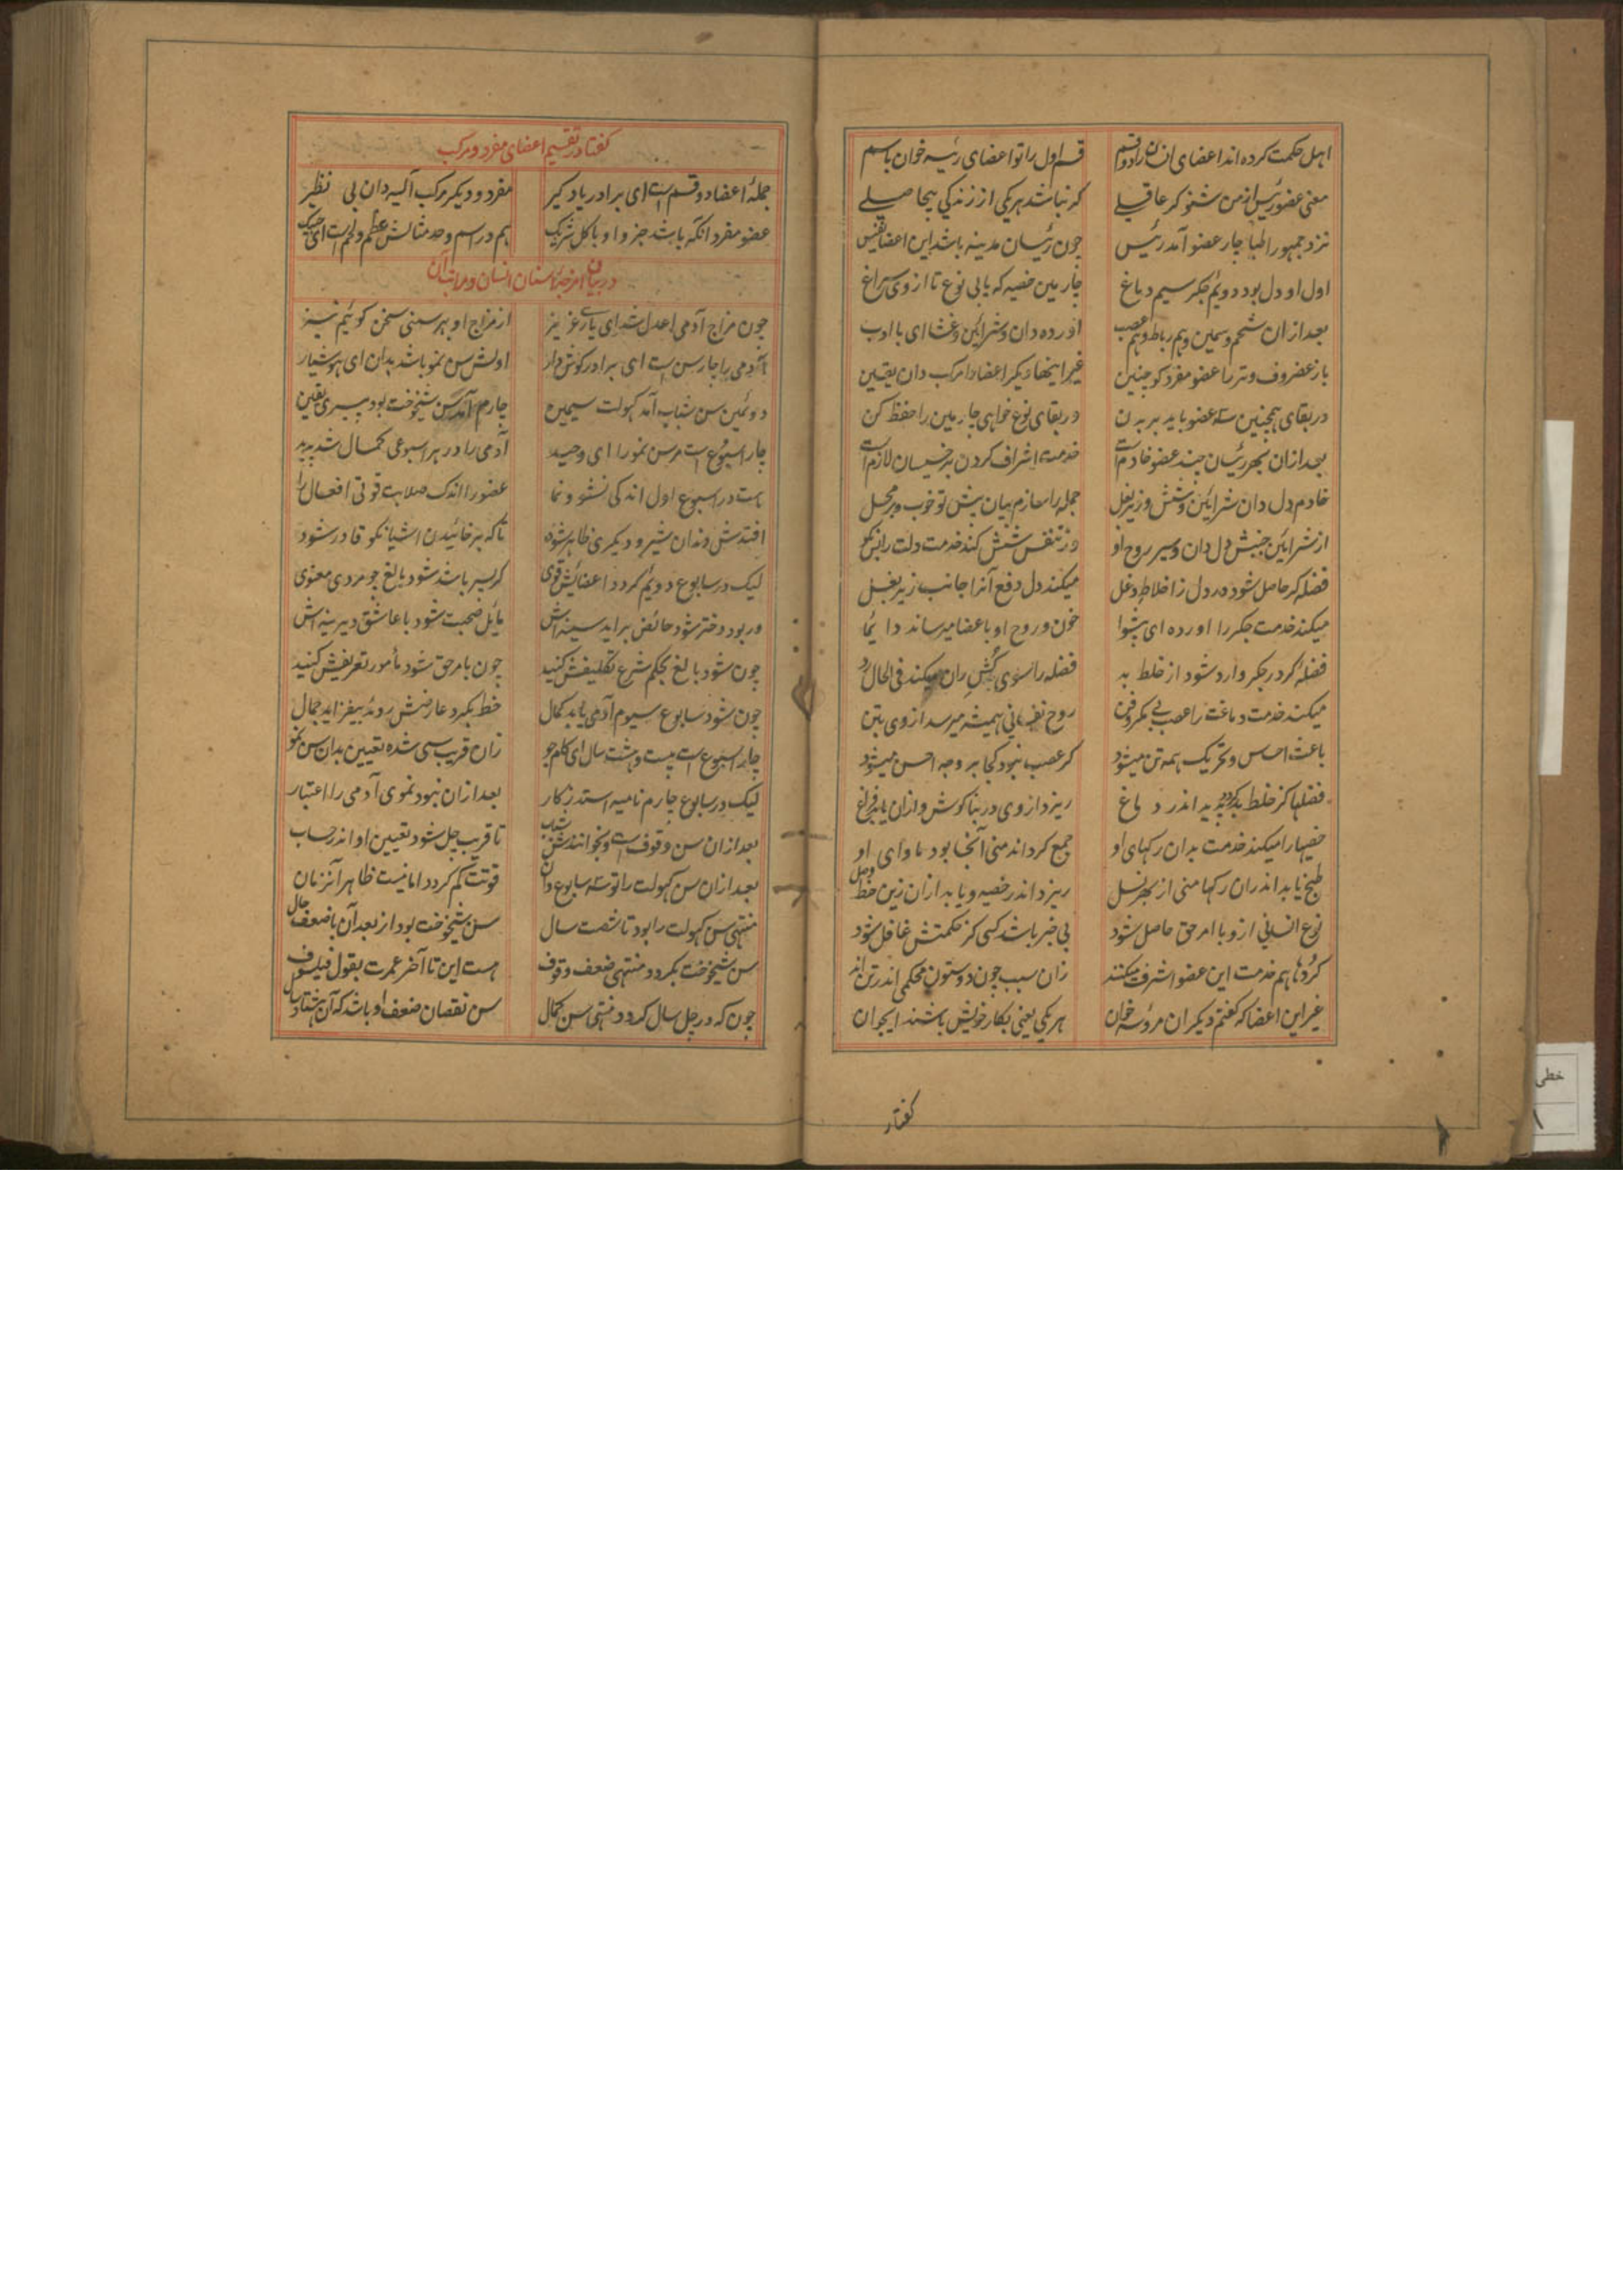 اهل حکمت کرده اند اعضای انسان را دو قسم قسم اول را تو اعضای رئیسه خوان باسم
معنی عضو رئیس از من شنو گر عاقلی گر نباشد هر یکی از زندگی بیحاصلی
نزد جمهور اطبا چار عضو آمد رئیس چون رئیسان مدینه باشد این اعضا نفیس
اول او دل بود دویم جگر سیم دماغ چارمین خصیه که یابی نوع تا از وی سراغ
بعد ازان شحم و سمین و هم رباط و هم عصب اورده دان و شرائین و غشا ای با ادب
باز غضروف و وتر را عضو مفرد گو چنین غیر اینها دیگر اعضا را مرکب دان یقین
در بقای همچنین سه عضو باید بر بدن در بقای نوع خواهی چارمین را حفظ کن
بعد ازان بهر رئیسان چند عضو خادم است خدمت اشراف کردن بر خسیسان لازم است
خادم دل دان شرائین و شش و زیر بغل جمله را سازم بیان پیش تو خوب و بر محل
از شرائین جنبش دل دان و سیر روح او وز تنفس شش کند خدمت دلت را بس نکو
فضله گر حاصل شود در دل ز اخلاط دغل میکند دل دفع آنرا جانب زیر بغل
میکند خدمت جگر را اورده ای پیشوا خون و روح او با عضا میرساند دایما
فضله گر در جگر وارد شود از خلط بد فضله را سوی کش ران میکند فی الحال رد
میکند خدمت دماغت را عصب بی مکر و فن روح نفسانی همیشه میرسد از وی بتن
باعث احساس و تحریک همه تن میشود گر عصب نبود کجا بر وجه احسن میشود
فضلها کز خلط بد گردد پدید اندر دماغ ریزد از وی در بناگوش و ازان یابد فراغ
خصیها را میکند خدمت بدان رگهای او جمع گرداند منی آنجا بود ماوای او
طبخ یابد اندران رگها منی از بهر نسل ریزد اندر خصیه و یابد ازان زین خط وصل
نوع انسانی ازو با امر حق حاصل شود بی خبر باشد کسی کز حکمتش غافل شود
گردها هم خدمت این عضو اشرف میکنند زان سبب چون دو ستون محکمی اندر تن اند
غیر این اعضا که گفتم دیگران مرؤسه خوان هر یکی یعنی بکار خویش باشند ایجوان
گفتار
گفتار در تقسیم اعضای مفرد و مرکب
جملهٔ اعضا دو قسم است ای برادر یاد گیر مفرد و دیگر مرکب آلیه دان بی نظیر
عضو مفرد آنکه باشد جزو او با کل شریک هم در اسم و حد مثالش عظم و لحم است ای
در بیان امزجه اسنان انسان و مراتب آن
چون مزاج آدمی اعدل شد ای یار عزیز از مزاج او بهر سنی سخن گوئیم نیز
آدمی را چار سن است ای برادر گوش دار اولش سن نمو باشد بدان ای هوشیار
دوئمین سن شباب آمد کهولت سیمین چارم آمد سن شیخوخت بود پیری یقین
چار اسبوع است مر سن نمو را ای وحید آدمی را در هر اسبوعی کمال شد پدید
هست در اسبوع اول اندکی نشو و نما عضو را اندک صلابت قوتی افعال را
افتدش دندان شیر و دیگری ظاهر شود تا که بر خائیدن اشیا نکو قادر شود
لیک در سابوع دویم گردد اعضائش قوی گر پسر باشد شود بالغ چو مردی معنوی
ور بود دختر شود حائض براید سینه اش مایل صحبت شود با عاشق دیرینه اش
چون شود بالغ بحکم شرع تکلیفش کنید چون بامر حق شود مأمور تعریفش کنید
چون شود سابوع سیوم آدمی یابد کمال خط بگرد عارضش روید بیفزاید جمال
چار اسبوع است بیست و هشت سال ای کام جو زان قریب سی شده تعیین بدان سن نمو
لیک در سابوع چارم نامیه استد ز کار بعد ازان نبود نموی آدمی را اعتبار
بعد ازان سن وقوف است و بخوانندش شباب تا قریب چل شود تعیین او اندر حساب
بعد ازان سن کهولت را تو سه سابوع دان قوتت کم گردد اما نیست ظاهر آنزمان
منتهی سن کهولت را بود تا شصت سال سن شیخوخت بود از بعد آن با ضعف حال
سن شیخوخت بگردد منتهی ضعف و قوف هست این تا آخر عمرت بقول فیلسوف
چون که در چل سال گردد منتهی سن کمال سن نقصان ضعف او باشد که آن هشتاد سال
خطی
۱